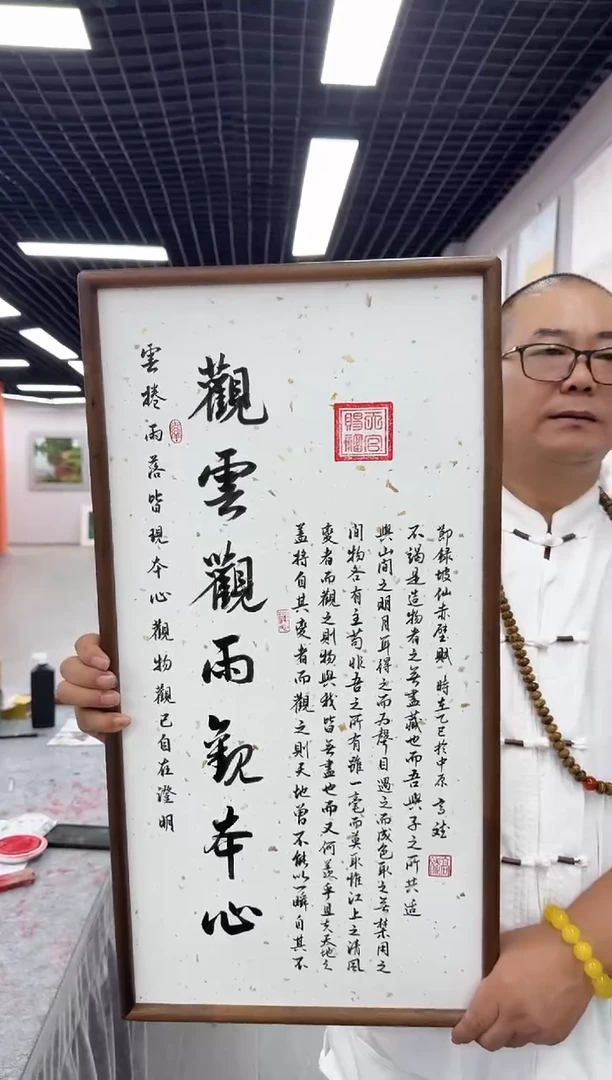 雲捲雨落皆現本心觀物觀己自在澄明
觀雲觀雨觀本心
天官賜福
蓋將自其變者而觀之則天地曾不能以一瞬自其不
變者而觀之則物與我皆無盡也而又何羨乎且夫天地之
間物各有主苟非吾之所有雖一毫而莫取惟江上之清風
與山間之明月耳得之而為聲目遇之而成色取之無禁用之
不竭是造物者之無盡藏也而吾與子之所共適
節錄坡仙赤壁賦 時在乙巳於中原